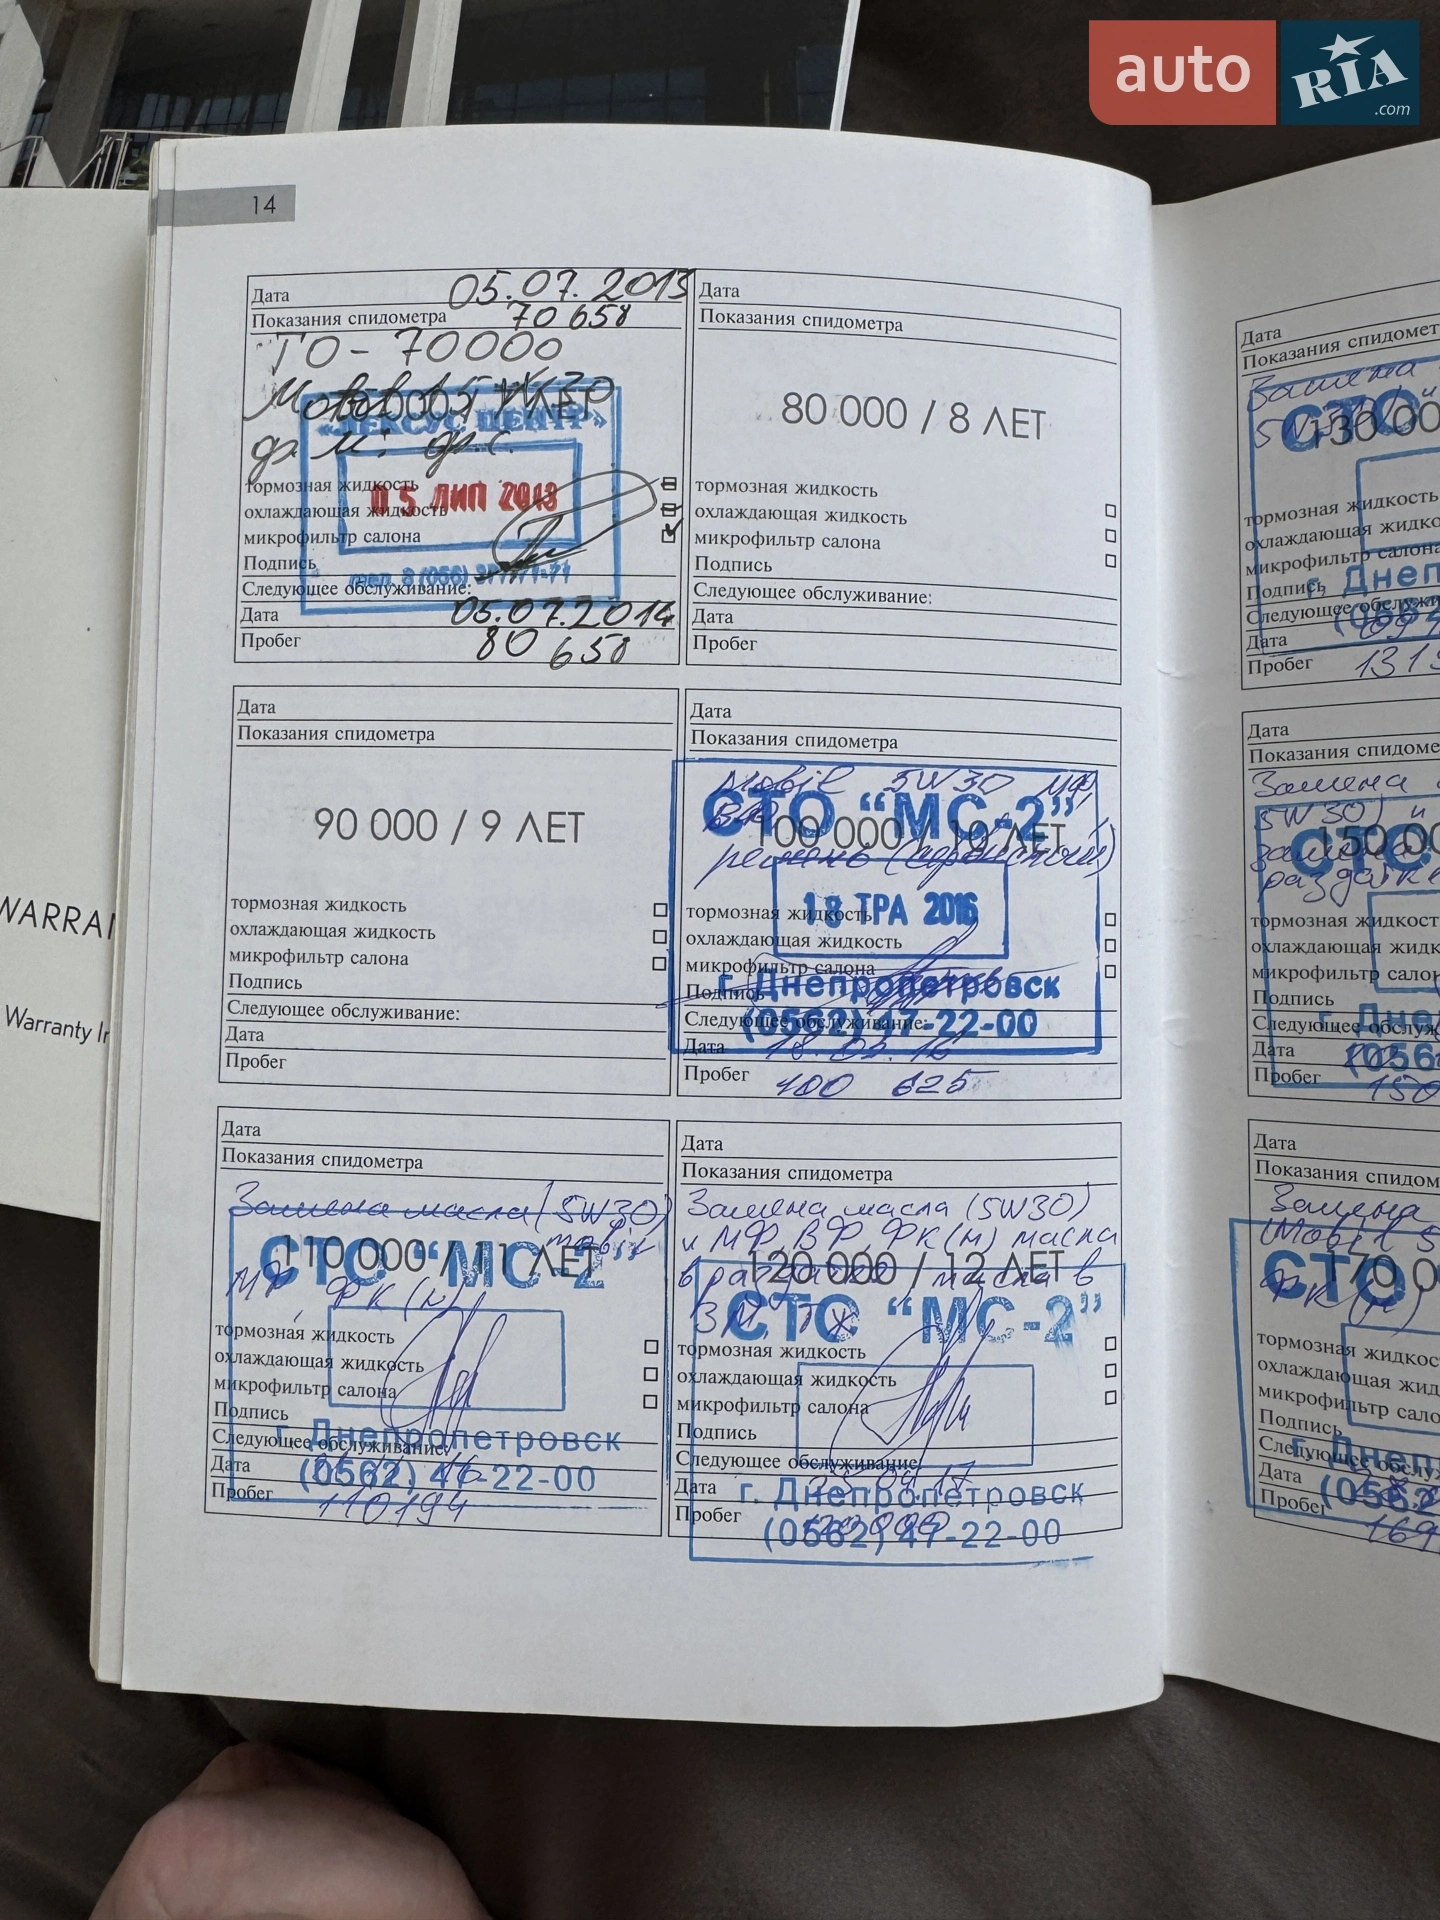 auto RIA .com
14
Дата 05.07.2013
Показания спидометра 70 658
ТО - 70000
Mobil 5W30
70 000 / 7 ЛЕТ
«ЛЕКСУС ЦЕНТР»
ф.м; ф.с.
тормозная жидкость
05 ЛИП 2013
охлаждающая жидкость
микрофильтр салона
Подпись
Следующее обслуживание:
Дата 05.07.2014
Пробег 80 658
Дата
Показания спидометра
80 000 / 8 ЛЕТ
тормозная жидкость
охлаждающая жидкость
микрофильтр салона
Подпись
Следующее обслуживание:
Дата
Пробег
Дата
Показания спидометра
90 000 / 9 ЛЕТ
тормозная жидкость
охлаждающая жидкость
микрофильтр салона
Подпись
Следующее обслуживание:
Дата
Пробег
Дата
Показания спидометра
Mobil 5W30 МФ,
СТО “МС-2”
100 000 / 10 ЛЕТ
ремень
тормозная жидкость
18 ТРА 2016
охлаждающая жидкость
микрофильтр салона
г. Днепропетровск
Подпись
Следующее обслуживание:
(0562) 47-22-00
Дата 18.05.16
Пробег 100 625
Дата
Показания спидометра
Замена масла (5W30)
mobil
110 000 / 11 ЛЕТ
СТО “МС-2”
МФ, ФК(н)
тормозная жидкость
охлаждающая жидкость
микрофильтр салона
Подпись
г. Днепропетровск
Следующее обслуживание:
Дата
(0562) 47-22-00
Пробег 110194
Дата
Показания спидометра
Замена масла (5W30)
и МФ, ВФ, ФК(н) масла
120 000 / 12 ЛЕТ
в раздатке, масла в
СТО “МС-2”
ЗМ, ТЖ
тормозная жидкость
охлаждающая жидкость
микрофильтр салона
Подпись
Следующее обслуживание:
Дата 25.04.17
г. Днепропетровск
Пробег
(0562) 47-22-00
Дата
Показания спидомет
Замена
СТО
130 00
5W30
тормозная жидкость
охлаждающая жидко
микрофильтр салона
г. Днеп
Подпись
Следующее обслужи
(0562
Дата
Пробег 1313
Дата
Показания спидоме
Замена
5W30) и
СТО
150 00
замена
раздатке
тормозная жидкост
охлаждающая жидк
микрофильтр салон
Подпись
г. Дне
Следующее обслуж
Дата
(056
Пробег 150
Дата
Показания спидом
Замена
(Mobil 5
СТО
170 0
ФК(н)
тормозная жидкос
охлаждающая жид
микрофильтр сало
Подпись
г. Днеп
Следующее обслу
Дата
(0562
Пробег 169
WARRAN
Warranty In